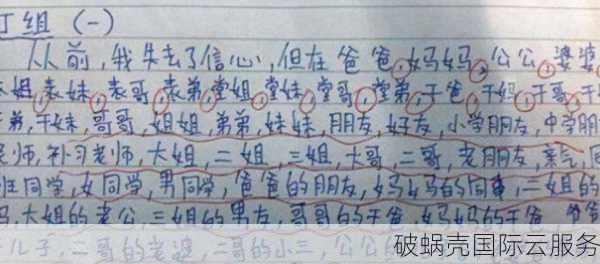 丁组 (一)
从前,我失去了信心,但在爸爸,妈妈,公公,婆婆
表姐,表妹,表哥,表弟,堂姐,堂妹,堂哥,堂弟,干爸,干妈,干哥,干
弟,干妹,哥哥,姐姐,弟弟,妹妹,朋友,好友,小学朋友,中学朋
老师,补习老师,大姐,二姐,三姐,大哥,二哥,老朋友,亲气,同
班同学,女同学,男同学,爸爸的朋友,妈妈的同事,二姐的
妈,大姐的老公,三姐的男友,哥哥的干爸,妈妈的干爸
儿子,二哥的老婆,二哥的小三,公公
破蜗壳国际云服务